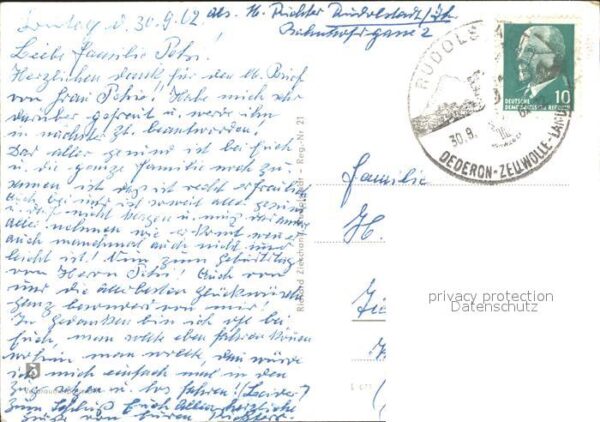 Sonntag d. 30.9.62. Abs. H. Richter Rudolstadt/Th.
Bahnhofsgasse 2
Liebe Familie Petri!
Herzlichen Dank für den lb. Brief
von Frau Petri! Habe mich sehr
darüber gefreut u. werde ihn
in nächster Zt. beantworten!
Das alles gesund ist bei Euch
u. die ganze Familie noch zu-
sammen ist das ist recht erfreulich
Auch bei uns ist soweit alles gesund
u. darf nicht und muß
alles nehmen wie es kommt wenn es
auch manchmal auch nicht immer
leicht ist! Nun zum Geburtstag
von Herrn Petri! Auch von
uns die allerbesten Glückwünsche
ganz besonders von mir!
In Gedanken bin ich oft bei
Euch, man sollte eben fahren können
wohin man wollte, dann würde
ich mich einfach mal in den
Zug setzen u. los fahren! (Leider)
Zum Schluß Euch Allen herzliche
Grüße von Euren Richters.
Familie
H.
RUDOLS
30.9.
DEDERON-ZELLWOLLE-
DEUTSCHE
DEMOKRATISCHE REPUBLIK
10
Reg.-Nr 21
privacy protection
Datenschutz